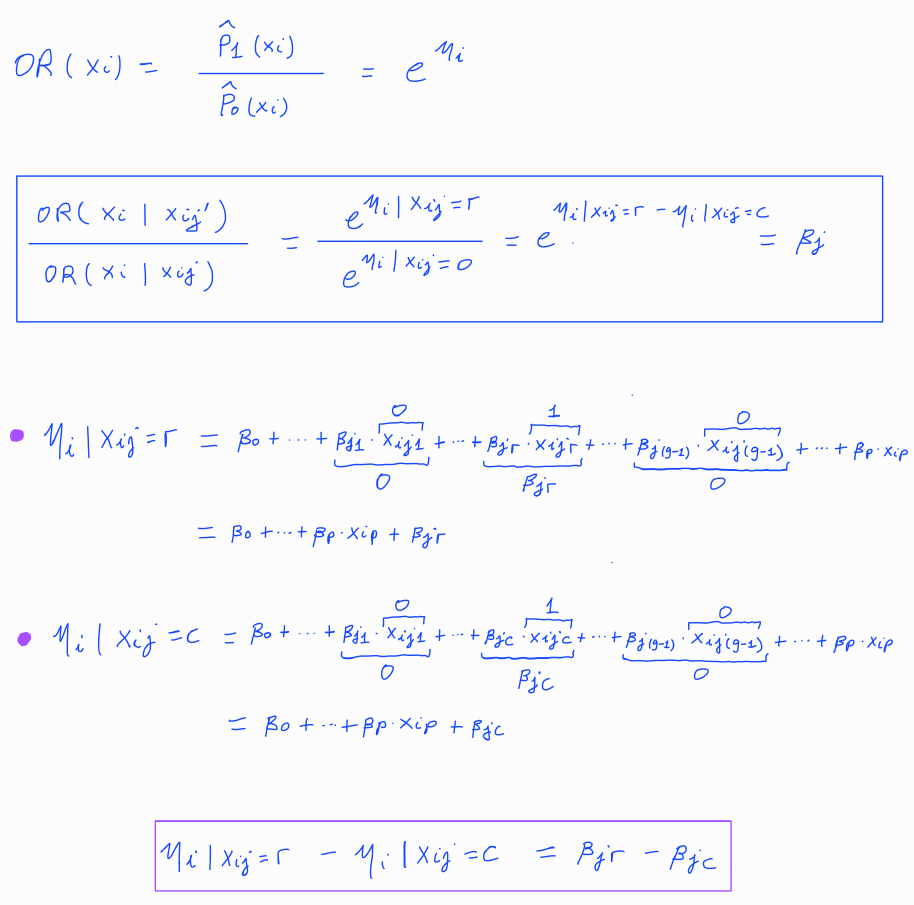 OR(xi) = P̂1(xi) / P̂0(xi) = e^ηi
OR(xi | xij') / OR(xi | xij) = e^(ηi | xij=r) / e^(ηi | xij=0) = e^(ηi | xij=r − ηi | xij=c) = βj
• ηi | xij=r = β0 + ··· + βj1 · xij1 + ··· + βjr · xijr + ··· + βj(g-1) · xij(g-1) + ··· + βp · xip
0 1 0
0 βjr 0
= β0 + ··· + βp · xip + βjr
• ηi | xij=c = β0 + ··· + βj1 · xij1 + ··· + βjc · xijc + ··· + βj(g-1) · xij(g-1) + ··· + βp · xip
0 1 0
0 βjc 0
= β0 + ··· + βp · xip + βjc
ηi | xij=r − ηi | xij=c = βjr − βjc